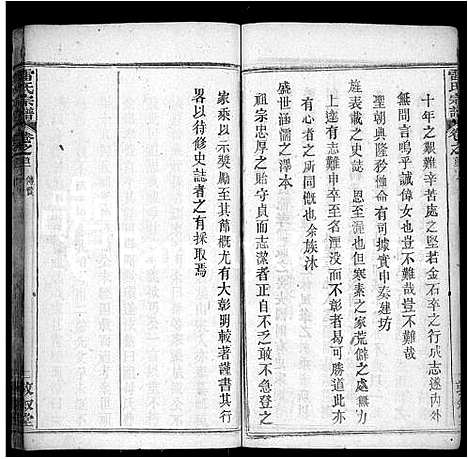 雷氏宗譜
卷之
十年之艱難辛苦處之堅若金石卒之行成志遂內外
無間言嗚乎誠偉女也豈不難哉豈不難哉
聖朝興隆矜恤命有司據實申奏建坊
旌表載之史誌 恩至渥也但寒素之家荒僻之處無力
上達有志難申卒至名湮沒而不彰者何可勝道此亦
有心者之所同慨也余族沐
盛世涵濡之澤本
祖宗忠厚之貽守貞而志潔者正自不乏不敢不急登之
家乘以示獎勵至其節概尤有大彰明較著謹書其行
畧以待修史誌者之有採取焉
雷氏宗譜
卷之三
傳贊
一
敦敘堂